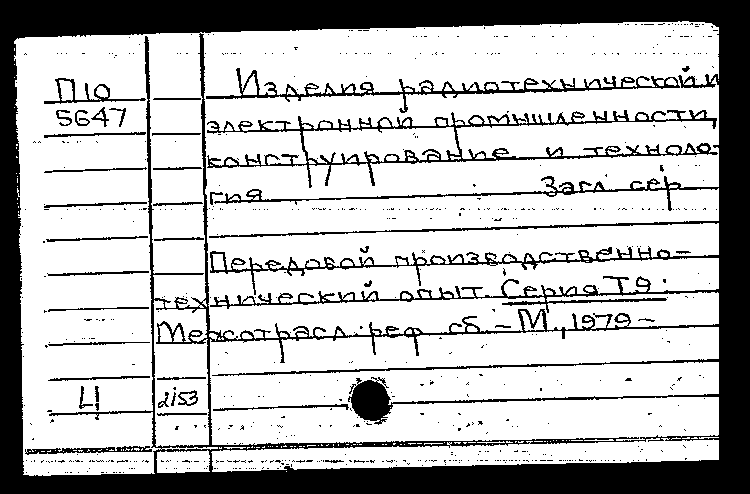 П10
5647
Изделия радиотехнической и
электронной промышленности,
конструирование и техноло-
гия Загл. сер.
Передовой производственно-
технический опыт. Серия Т.9:
Межотрасл. реф. сб. – М., 1979 –
Ц 2153